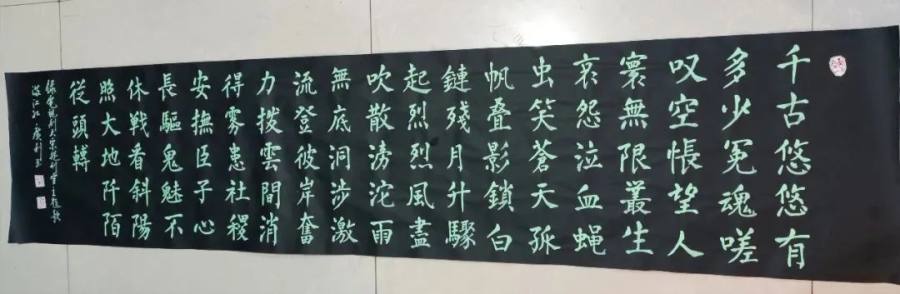 千古悠悠有
多少冤魂嗟
叹空怅望人
寰無限叢生
哀怨泣血蝇
虫笑蒼天孤
帆叠影鎖白
鏈殘月升驟
起烈烈風盡
吹散滂沱雨
無底洞涉激
流登彼岸奮
力撥雲間消
得雾患社稷
安撫臣子心
長驅鬼魅不
休戰看斜陽
照大地阡陌
從頭轉